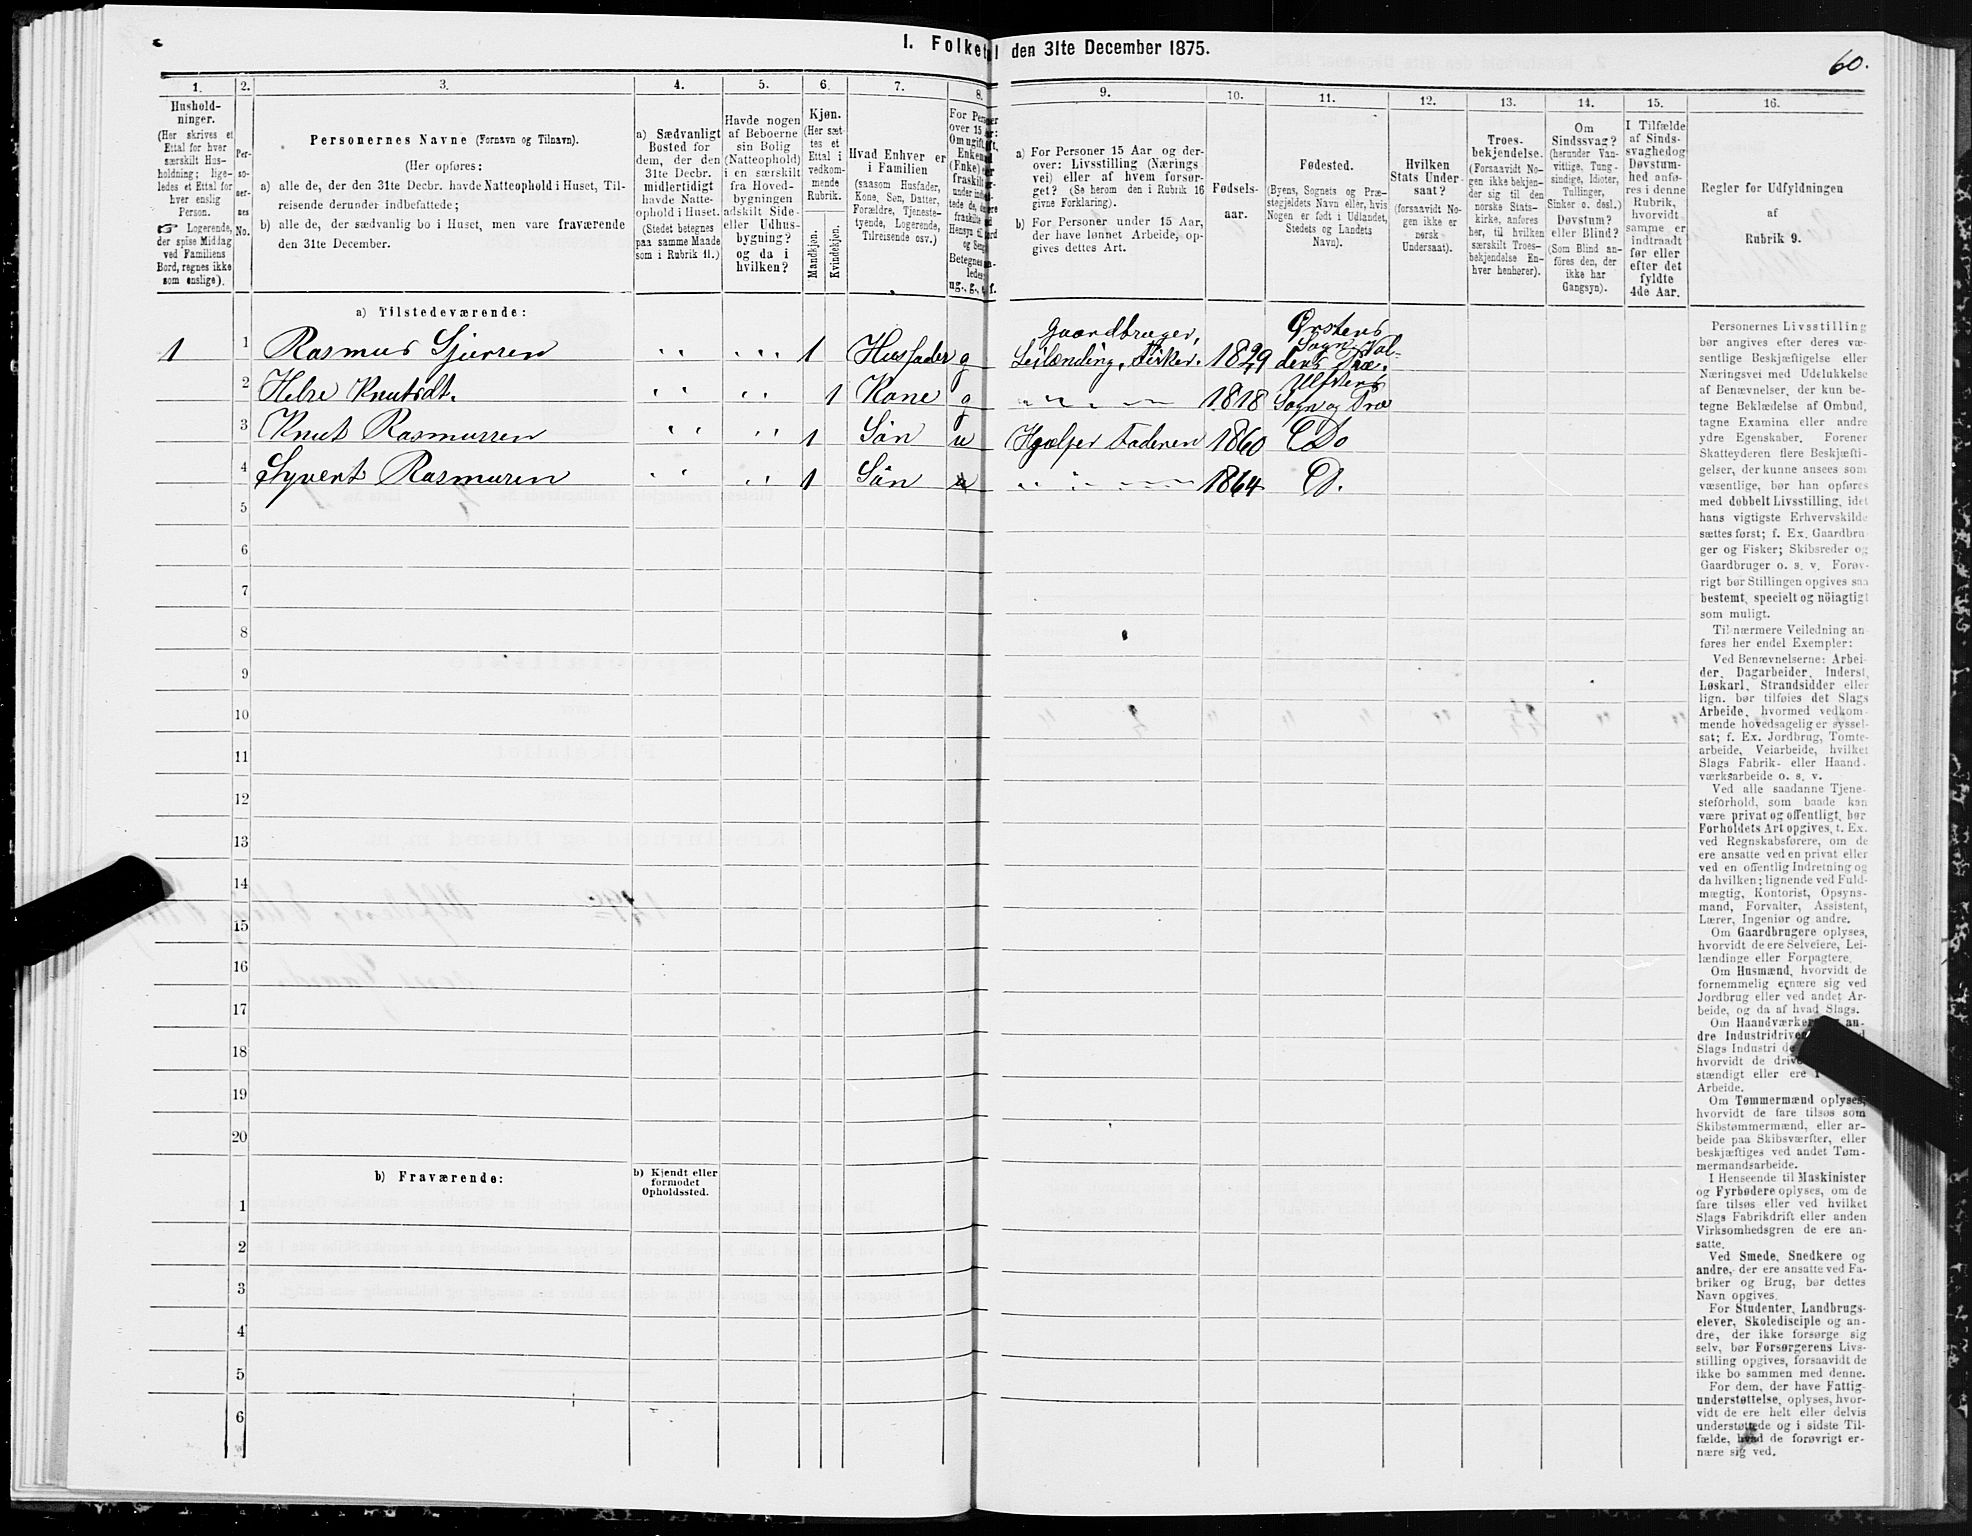 I. Folketal den 31te December 1875.
60.
1.
2.
3.
4.
5.
6.
7.
8.
9.
10.
11.
12.
13.
14.
15.
16.
Hushold-
ninger.
(Her skrives et
Ettal for hver
særskilt Hus-
holdning; lige-
ledes et Ettal for
hver enslig
Person.
☞ Logerende,
der spise Middag
ved Familiens
Bord, regnes ikke
som enslige).
Per-
so-
ner-
nes
No.
Personernes Navne (Fornavn og Tilnavn).
(Her opføres:
a) alle de, der den 31te Decbr. havde Natteophold i Huset, Til-
reisende derunder indbefattede;
b) alle de, der sædvanlig bo i Huset, men vare fraværende
den 31te December.
a) Sædvanligt
Bosted for
dem, der den
31te Decbr.
midlertidigt
havde Natte-
ophold i Huset.
(Stedet betegnes
paa samme Maade
som i Rubrik 11.)
Havde nogen
af Beboerne
sin Bolig
(Natteophold)
i en særskilt
fra Hoved-
bygningen
adskilt Side-
eller Udhus-
bygning?
og da i
hvilken?
Kjøn.
(Her sæt-
tes et
Ettal i
vedkom-
mende
Rubrik.
Mandkjøn.
Kvindekjøn.
Hvad Enhver er
i Familien
(saasom Husfader,
Kone, Søn, Datter,
Forældre, Tjeneste-
tyende, Logerende,
Tilreisende osv.)
a) For Personer 15 Aar og der-
over: Livsstilling (Nærings
vei) eller af hvem forsør-
get? (Se herom den i Rubrik 16
givne Forklaring).
b) For Personer under 15 Aar,
der have lønnet Arbeide, op-
gives dettes Art.
Fødsels-
aar.
Fødested.
(Byens, Sognets og Præ-
stegjeldets Navn eller, hvis
Nogen er født i Udlandet,
Stedets og Landets
Navn).
Hvilken
Stats Under-
saat?
(forsaavidt No-
gen ikke er
norsk
Undersaat).
Troes-
bekjendelse.
(Forsaavidt No-
gen ikke bekjen-
der sig til den
norske Stats-
kirke, anføres
her, til hvilken
særskilt Troes-
bekjendelse En-
hver henhører).
Om
Sindssvag?
(herunder Van-
vittige, Tung-
sindige, Idioter,
Tullinger,
Sinker o. desl.)
Døvstum?
eller Blind?
(Som Blind an-
føres den, der
ikke har
Gangsyn).
I Tilfælde
af Sinds-
svaghed og
Døvstum-
hed anfø-
res i denne
Rubrik,
hvorvidt
samme er
indtraadt
før eller
efter det
fyldte
4de Aar.
Regler for Udfyldningen
af
Rubrik 9.
a) Tilstedeværende:
1 1 Rasmus Sjursen " " 1 Husfader g Gaardbruger, Leilænding, Fisker. 1829 Ørstens Sogn, Voldens Præ.
2 Helse Knutsdt. " " 1 Kone g " " 1818 Ulfstens Sogn og Præ
3 Knut Rasmussen " " 1 Sön u Hjælper Faderen 1860 Do
4 Syvert Rasmusen " " 1 Sön u " " 1864 D.
5
6
7
8
9
10
11
12
13
14
15
16
17
18
19
20
b) Fraværende:
b) Kjendt eller
formodet
Opholdssted.
1
2
3
4
5
6
Personernes Livsstilling
bør angives efter deres væ-
sentlige Beskjæftigelse eller
Næringsvei med Udelukkelse
af Benævnelser, der kun be-
tegne Beklædelse af Ombud,
tagne Examina eller andre
ydre Egenskaber. Forener
Skatteyderen flere Beskjæfti-
gelser, der kunne ansees som
væsentlige, bør han opføres
med dobbelt Livsstilling, idet
hans vigtigste Erhvervskilde
sættes først; f. Ex. Gaardbru-
ger og Fisker; Skibsreder og
Gaardbruger o. s. v. Forøv-
rigt bør Stillingen opgives saa
bestemt, specielt og nöiagtigt
som muligt.
Til nærmere Veiledning an-
føres her endel Exempler:
Ved Benævnelserne: Arbei-
der, Dagarbeider, Inderst,
Løskarl, Strandsidder eller
lign. bør tilføies det Slags
Arbeide, hvormed vedkom-
mende hovedsagelig er syssel-
sat; f. Ex. Jordbrug, Tomte-
arbeide, Veiarbeide, hvilket
Slags Fabrik- eller Haand-
værksarbeide o. s. v.
Ved alle saadanne Tjene-
steforhold, som baade kan
være privat og offentligt, bør
Forholdets Art opgives, t. Ex.
ved Regnskabsførere, om de
ere ansatte ved en privat eller
ved en offentlig Indretning og
da hvilken; lignende ved Fuld-
mægtig, Kontorist, Opsyns-
mand, Forvalter, Assistent,
Lærer, Ingeniør og andre.
Om Gaardbrugere oplyses,
hvorvidt de ere Selveiere, Lei-
lændinge eller Forpagtere.
Om Husmænd, hvorvidt de
fornemmelig ernære sig ved
Jordbrug eller ved andet Ar-
beide, og da af hvad Slags.
Om Haandværkere og an-
dre Industridrivende
Slags Industri de
hvorvidt de drive
stændigt eller ere i
Arbeide.
Om Tømmermænd oplyses,
hvorvidt de fare tilsøs som
Skibstømmermænd, eller ar-
beide paa Skibsværfter, eller
beskjæftiges ved andet Tøm-
mermandsarbeide.
I Henseende til Maskinister
og Fyrbødere oplyses, om de
fare tilsøs eller ved hvilket
Slags Fabrikdrift eller anden
Virksomhedsgren de ere an-
satte.
Ved Smede, Snedkere og
andre, der ere ansatte ved Fa-
briker og Brug, bør dettes
Navn opgives.
For Studenter, Landbrugs-
elever, Skoledisciple og an-
dre, der ikke forsørge sig
selv, bør Forsørgerens Livs-
stilling opgives, forsaavidt de
ikke bo sammen med denne.
For dem, der have Fattig-
understøttelse, oplyses, hvor-
vidt de ere helt eller delvis
understøttede og i sidste Til-
fælde, hvad de forøvrigt er-
nære sig ved.